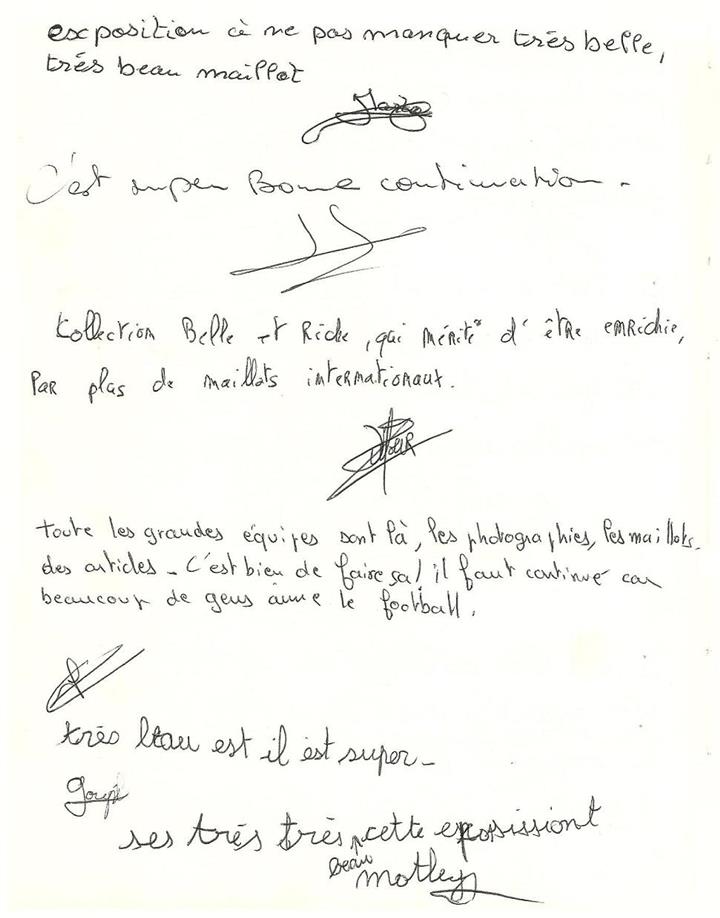 exposition à ne pas manquer très belle,
très beau maillot
C'est super Bonne continuation.
Kollection Belle et Riche, qui mérite d'être enrichie,
Par plus de maillots internationaux.
toute les grandes équipes sont là, les photographies, les maillots.
des articles - C'est bien de faire sa! il faut continué car
beaucoup de gens aime le football.
très beau est il est super -
ses très très cette exposissiont
beau
motley